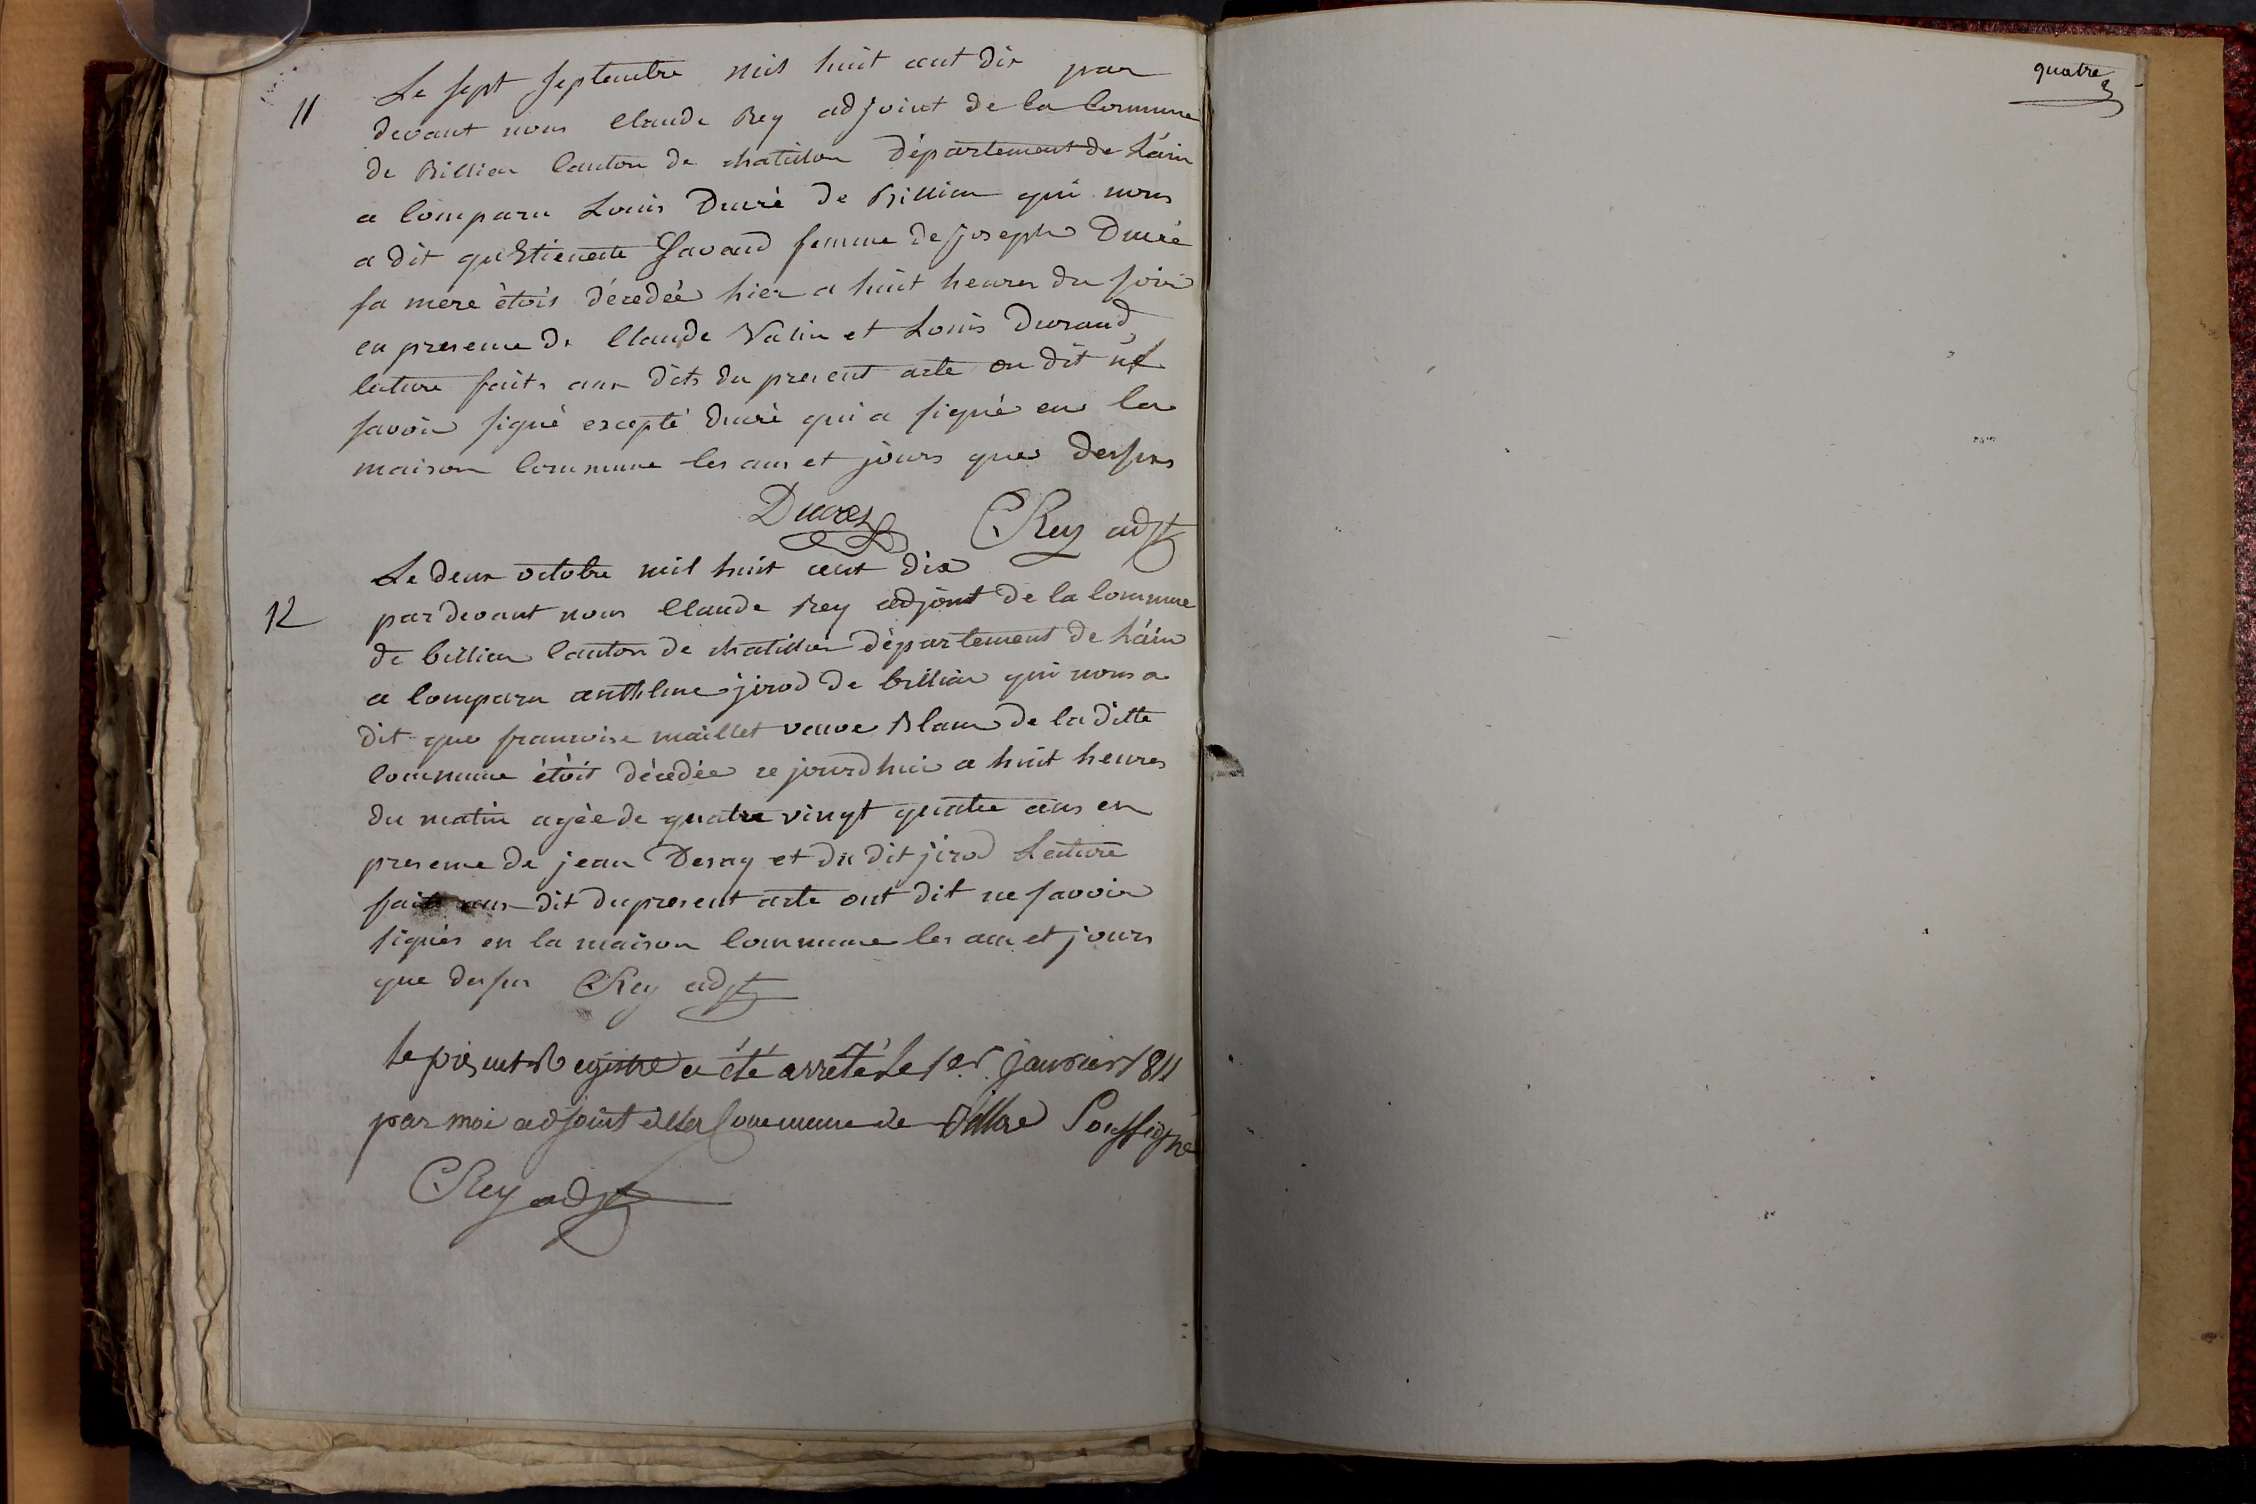 quatre
11
Le sept septembre mil huit cent dix par
devant nous Claude Rey adjoint de la Commune
de Billieu Canton de chatillon département de L'áin
a Comparu Louis Ducrè de Billieu qui nous
a dit qu'Etienette Favand femme de joseph Ducrè
sa mere ètois décedèe hier a huit heures du soir
en presence de Claude Vatin et Louis Durand
lecture faits aux dits du present acte on dit ne
savoir signè excepté Ducrè qui a signè en la
maison Commune les ans et jours que dessus
Ducrez CRey adjt
12
Le deux octobre mil huit cent dix
par devant nous Claude Rey adjont de la Commune
de billieu Canton de chatillon dèpartement de L'áin
a Comparu anthelme jirod de billieu qui nous a
dit que francoise maillet veuve Blanc de la ditte
Commune ètòit dècedèe ce jourd'hui a huit heures
du matin agèe de quatre vingt quatre ans en
presence de jean Desay et du dit jirod Lecture
faits aux dit du present acte ont dit ne savoir
signès en la maison Commune les an et jours
que dessus CRey adjt
le présent Registre a été arrêté Le 1er janvier 1811
par moi adjoint de la Commune de Soussigné
CRey adjt